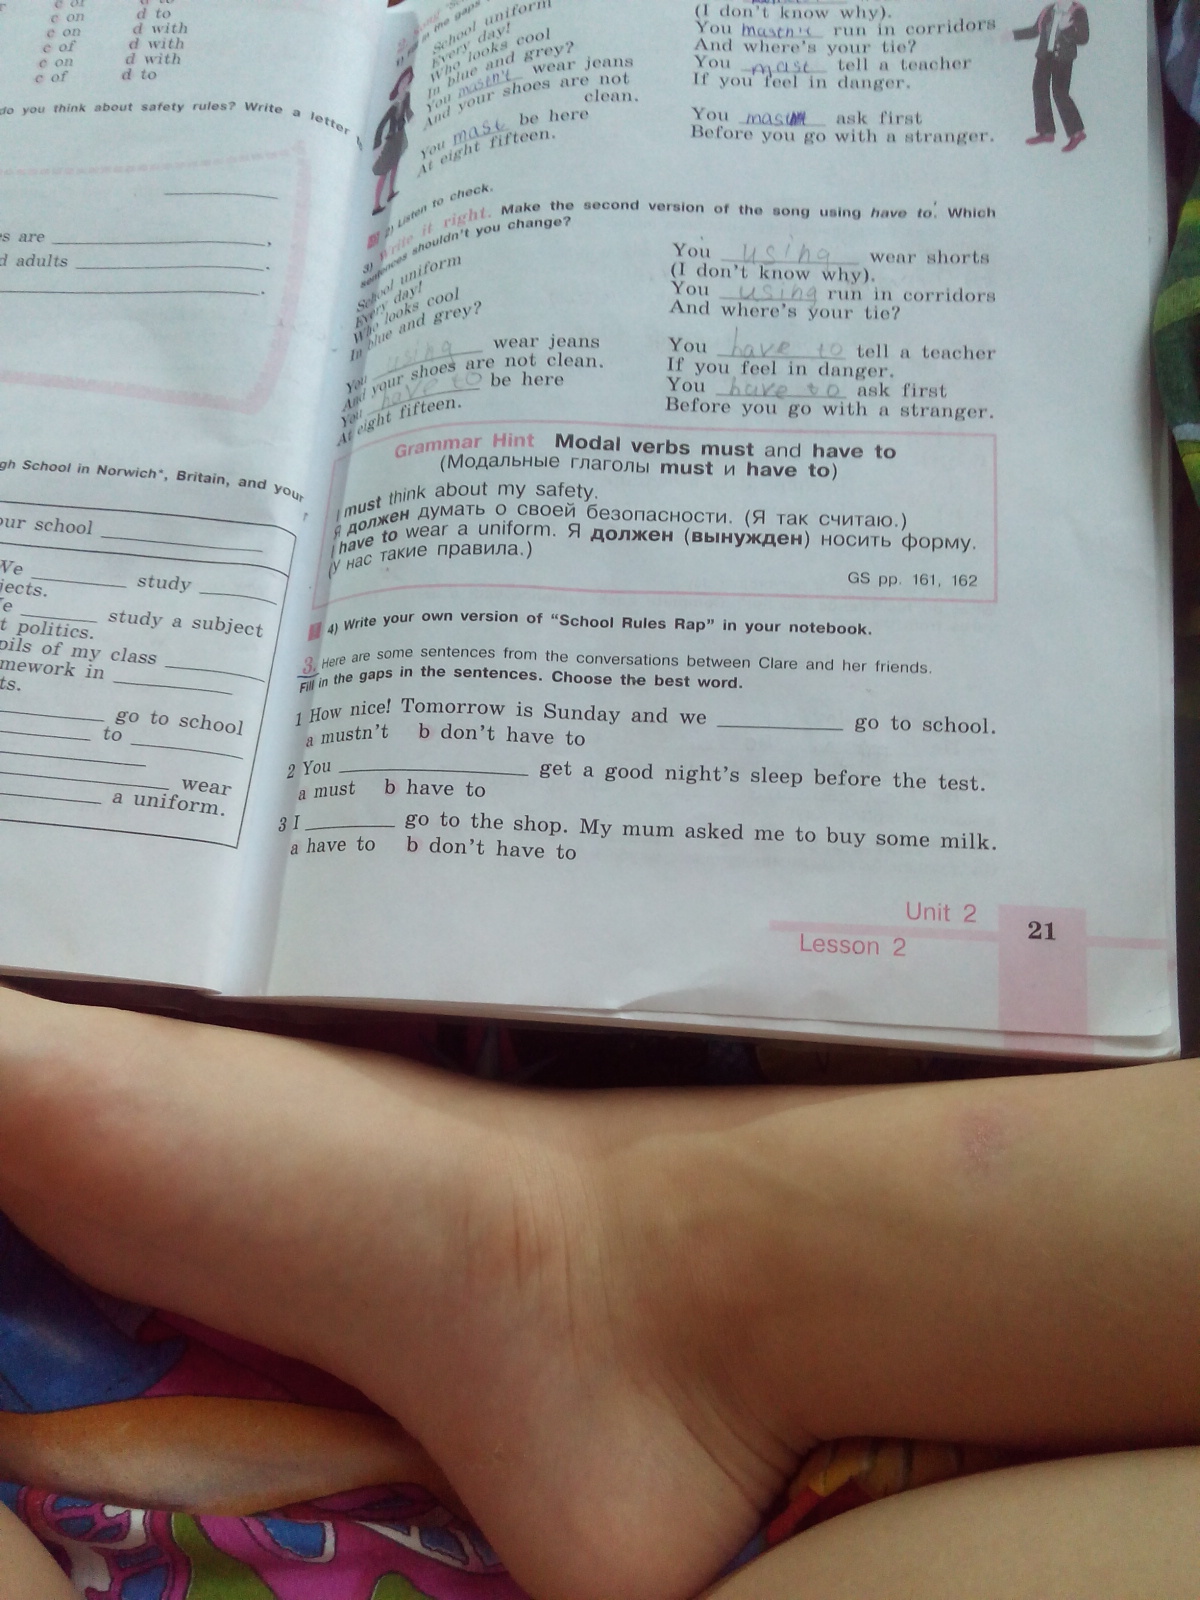 c on d to
c on d with
c of d with
c on d with
c of d to
do you think about safety rules? Write a letter
s are
d adults
gh School in Norwich*, Britain, and your
our school
We study
jects.
study a subject
t politics.
pils of my class
mework in
ts.
go to school
to
wear
a uniform.
School uniform
Every day!
Who looks cool
In blue and grey?
You mustn't wear jeans
And your shoes are not
clean.
You mast be here
At eight fifteen.
(I don't know why).
You mastn't run in corridors
And where's your tie?
You mast tell a teacher
If you feel in danger.
You mast ask first
Before you go with a stranger.
2) Listen to check.
3) Write it right. Make the second version of the song using have to. Which
sentences shouldn't you change?
School uniform
Every day!
Who looks cool
In blue and grey?
You using wear jeans
And your shoes are not clean.
You have to be here
At eight fifteen.
You using wear shorts
(I don't know why).
You using run in corridors
And where's your tie?
You have to tell a teacher
If you feel in danger.
You have to ask first
Before you go with a stranger.
Grammar Hint Modal verbs must and have to
(Модальные глаголы must и have to)
I must think about my safety.
Я должен думать о своей безопасности. (Я так считаю.)
I have to wear a uniform. Я должен (вынужден) носить форму.
(У нас такие правила.)
GS pp. 161, 162
4) Write your own version of "School Rules Rap" in your notebook.
3. Here are some sentences from the conversations between Clare and her friends.
Fill in the gaps in the sentences. Choose the best word.
1 How nice! Tomorrow is Sunday and we go to school.
a mustn't b don't have to
2 You get a good night's sleep before the test.
a must b have to
3 I go to the shop. My mum asked me to buy some milk.
a have to b don't have to
Unit 2
Lesson 2
21